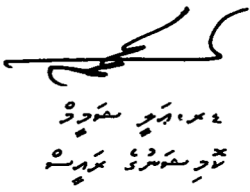 ޑރ.ޢަލީ ޝަމީމް
ކޮމިޝަނުގެ ރައީސް